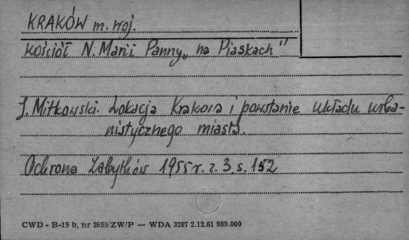 KRAKÓW m. woj.
kościół N. Marii Panny „na Piaskach"
J. Mitkowski. Lokacja Krakowa i powstanie układu urba-
nistycznego miasta.
Ochrona Zabytków 1955 r. z. 3 s. 152
CWD - B-15 b, nr ZW/P — WDA 3287 2.12.61 900.000